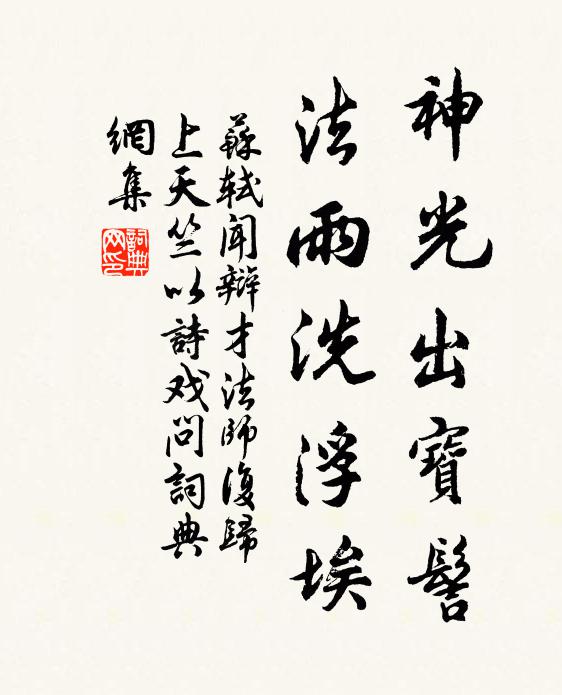 神光出寶髻
法雨洗浮埃
蘇軾聞辯才法師復歸
上天竺以詩戏問詞典
網集
詞典
网印